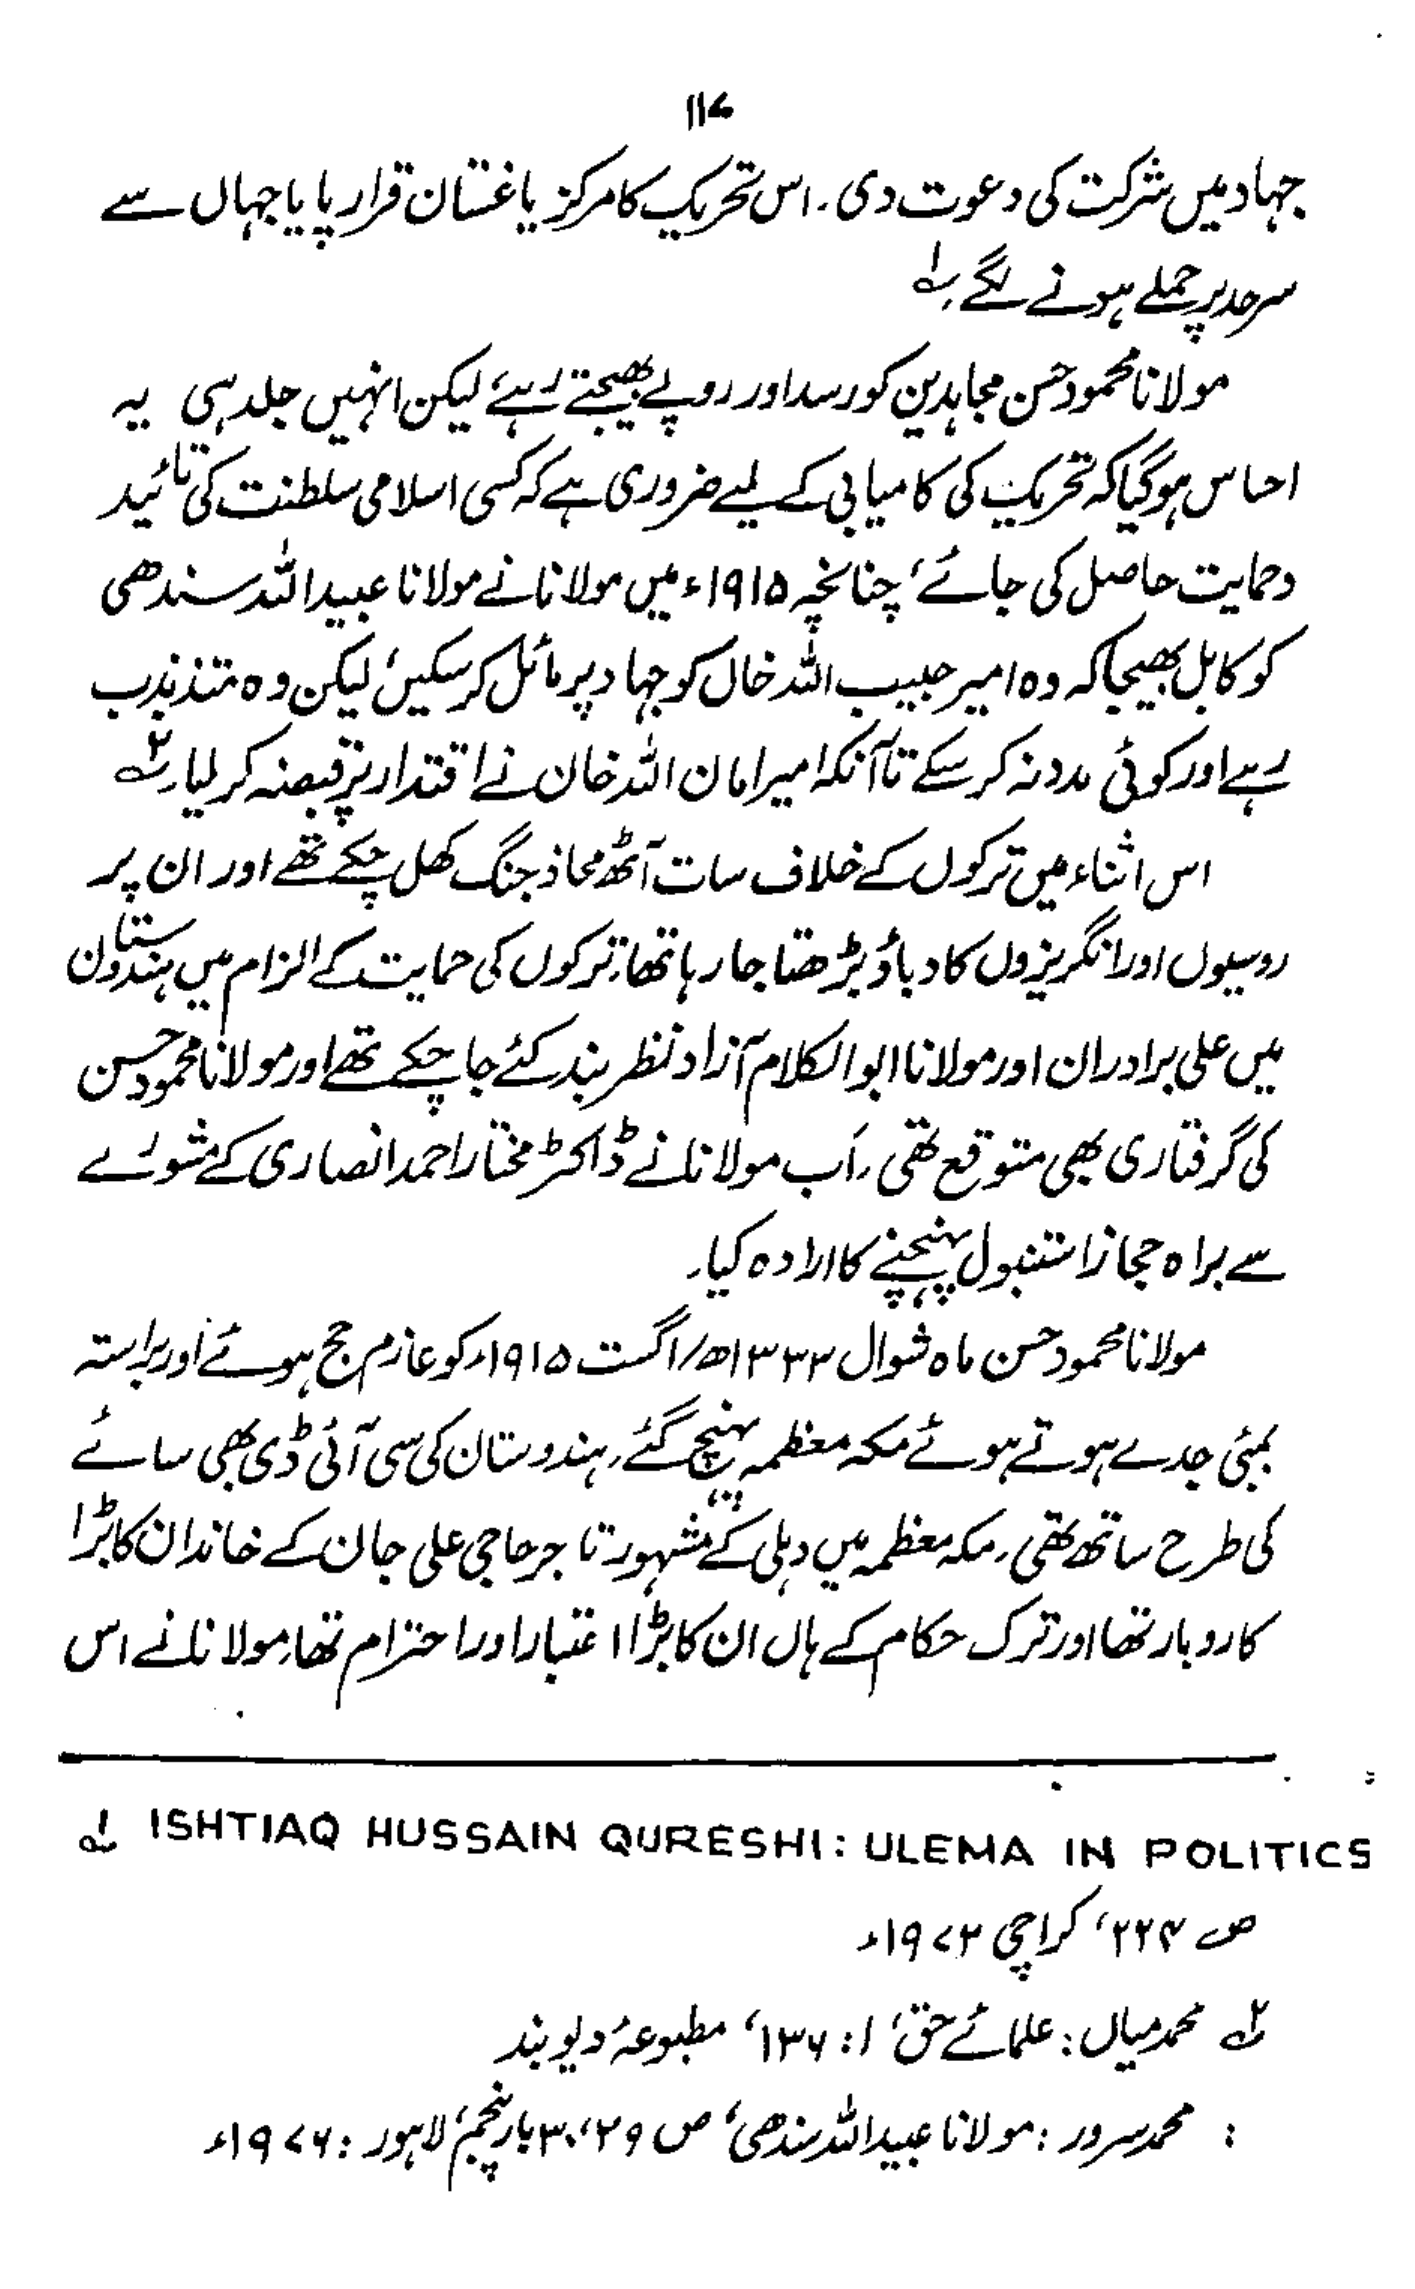 ۱۱۷
جہاد میں شرکت کی دعوت دی۔ اس تحریک کا مرکز یاغستان قرار پایا جہاں سے
سرحد پر حملے ہونے لگے۔ ؎۱
مولانا محمود حسن مجاہدین کو رسد اور روپے بھیجتے رہے، لیکن انہیں جلد ہی یہ
احساس ہو گیا کہ تحریک کی کامیابی کے لیے ضروری ہے کہ کسی اسلامی سلطنت کی تائید
و حمایت حاصل کی جائے، چنانچہ ۱۹۱۵ء میں مولانا نے مولانا عبید اللہ سندھی
کو کابل بھیجا کہ وہ امیر حبیب اللہ خاں کو جہاد پر مائل کر سکیں، لیکن وہ متذبذب
رہے اور کوئی مدد نہ کر سکے تا آنکہ امیر امان اللہ خان نے اقتدار پر قبضہ کر لیا۔ ؎۲
اس اثناء میں ترکوں کے خلاف سات آٹھ محاذ جنگ کھل چکے تھے اور ان پر
روسیوں اور انگریزوں کا دباؤ بڑھتا جا رہا تھا۔ ترکوں کی حمایت کے الزام میں ہندوستان
میں علی برادران اور مولانا ابو الکلام آزاد نظر بند کئے جا چکے تھے اور مولانا محمود حسن
کی گرفتاری بھی متوقع تھی۔ اَب مولانا نے ڈاکٹر مختار احمد انصاری کے مشورے
سے براہ حجاز استنبول پہنچنے کا ارادہ کیا۔
مولانا محمود حسن ماہ شوال ۱۳۳۳ھ/ اگست ۱۹۱۵ء کو عازم حج ہوئے اور براستہ
بمبئی جدے ہوتے ہوئے مکہ معظمہ پہنچ گئے۔ ہندوستان کی سی آئی ڈی بھی سائے
کی طرح ساتھ تھی۔ مکہ معظمہ میں دہلی کے مشہور تاجر حاجی علی جان کے خاندان کا بڑا
کاروبار تھا اور ترک حکام کے ہاں ان کا بڑا اعتبار اور احترام تھا۔ مولانا نے اس
؎۱ ISHTIAQ HUSSAIN QURESHI: ULEMA IN POLITICS
ص ۲۲۴، کراچی ۱۹۷۲ء
؎۲ محمد میاں: علمائے حق، ۱: ۱۳۶، مطبوعۂ دیوبند
: محمد سرور: مولانا عبید اللہ سندھی، ص ۲۹، ۳۰ بار پنجم، لاہور: ۱۹۷۶ء